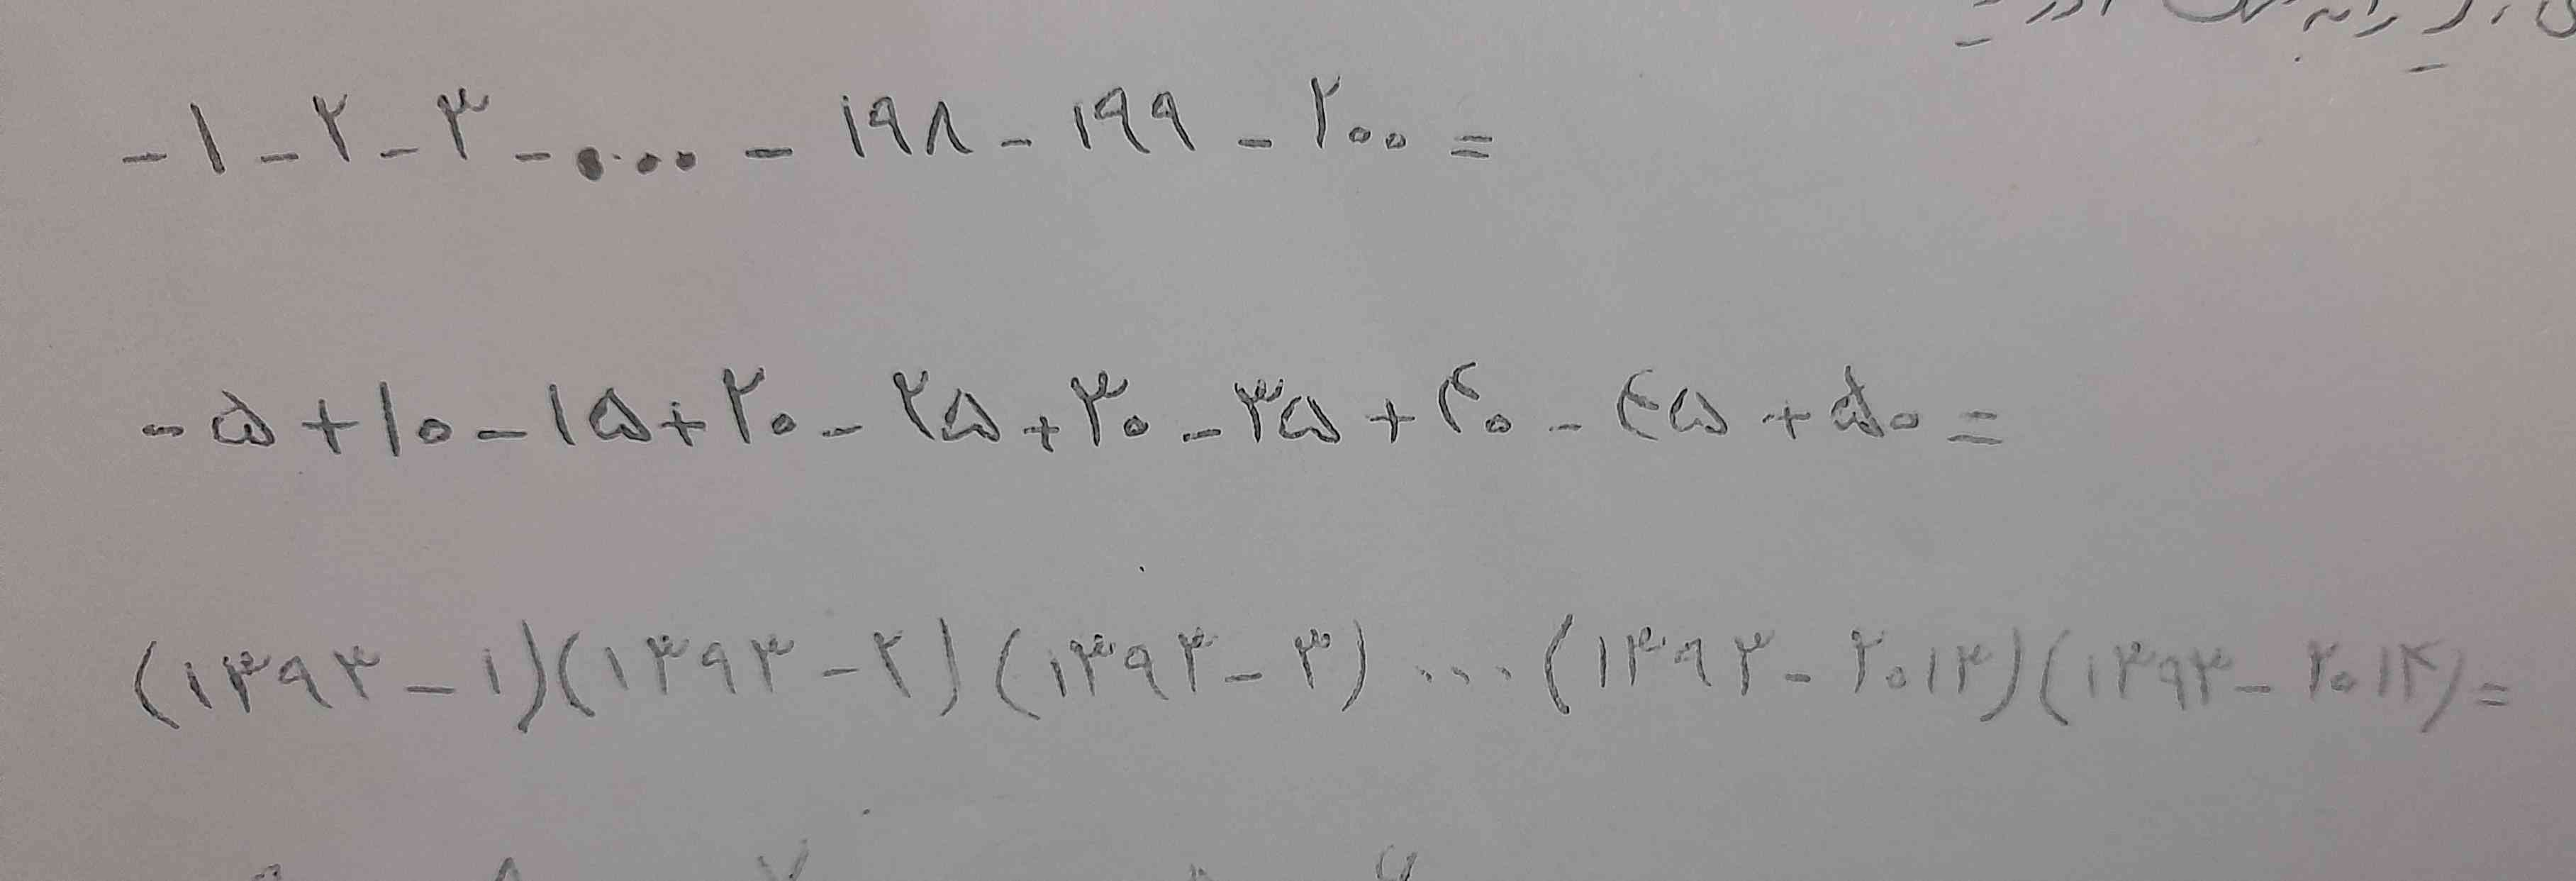 -۱-۲-۳-....-۱۹۸-۱۹۹-۲۰۰=
-۵+۱۰-۱۵+۲۰-۲۵+۳۰-۳۵+۴۰-۴۵+۵۰=
(۱۳۹۳-۱)(۱۳۹۳-۲)(۱۳۹۳-۳)...(۱۳۹۳-۲۰۱۳)(۱۳۹۳-۲۰۱۴)=